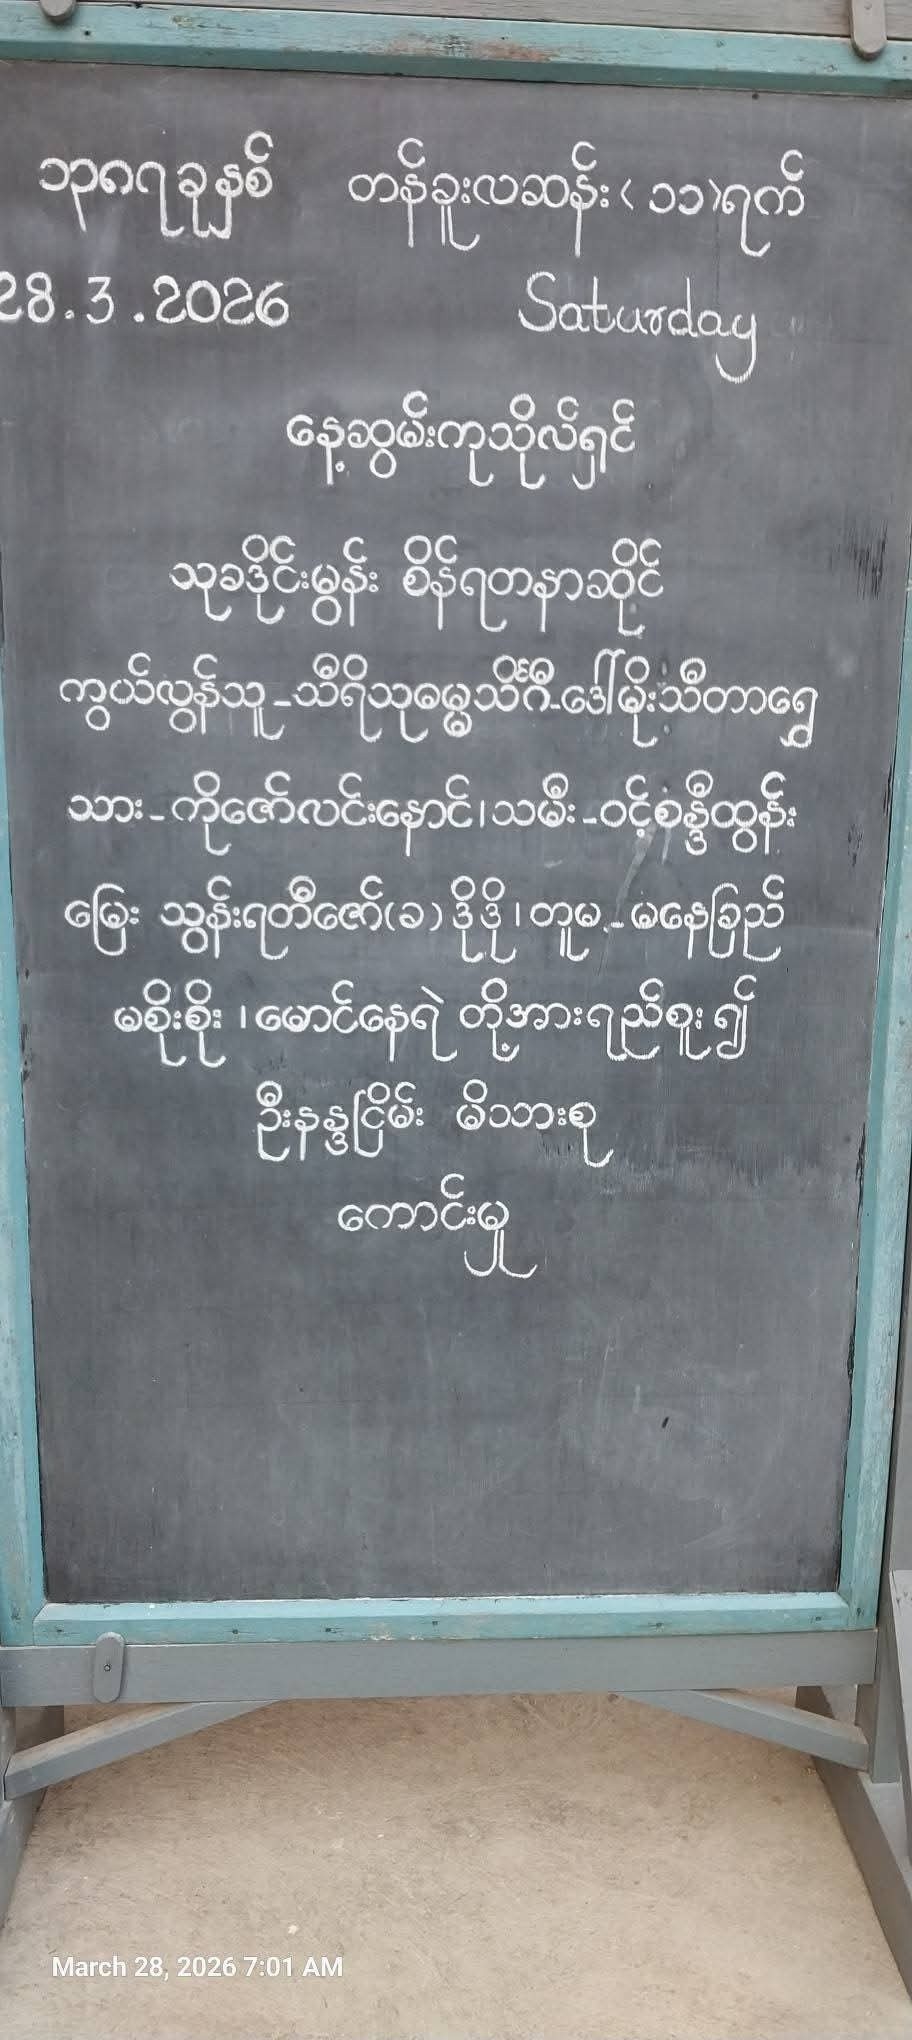 ၁၃၈၇ခုနှစ် တန်ခူးလဆန်း(၁၁)ရက်
28.3.2026 Saturday
နေ့ဆွမ်းကုသိုလ်ရှင်
သုခဒိုင်းမွန်း စိန်ရတနာဆိုင်
ကွယ်လွန်သူ-သီရိသုဓမ္မသိင်္ဂီ-ဒေါ်မိုးသီတာရွှေ
သား-ကိုဇော်လင်းနောင်၊သမီး-ဝင့်စန္ဒီထွန်း
မြေး သွန်းရတီဇော်(ခ)ဒိုဒို၊တူမ-မနေခြည်
မစိုးစိုး၊မောင်နေရဲ တို့အားရည်စူး၍
ဦးနန္ဒငြိမ်း မိသားစု
ကောင်းမှု
March 28, 2026 7:01 AM